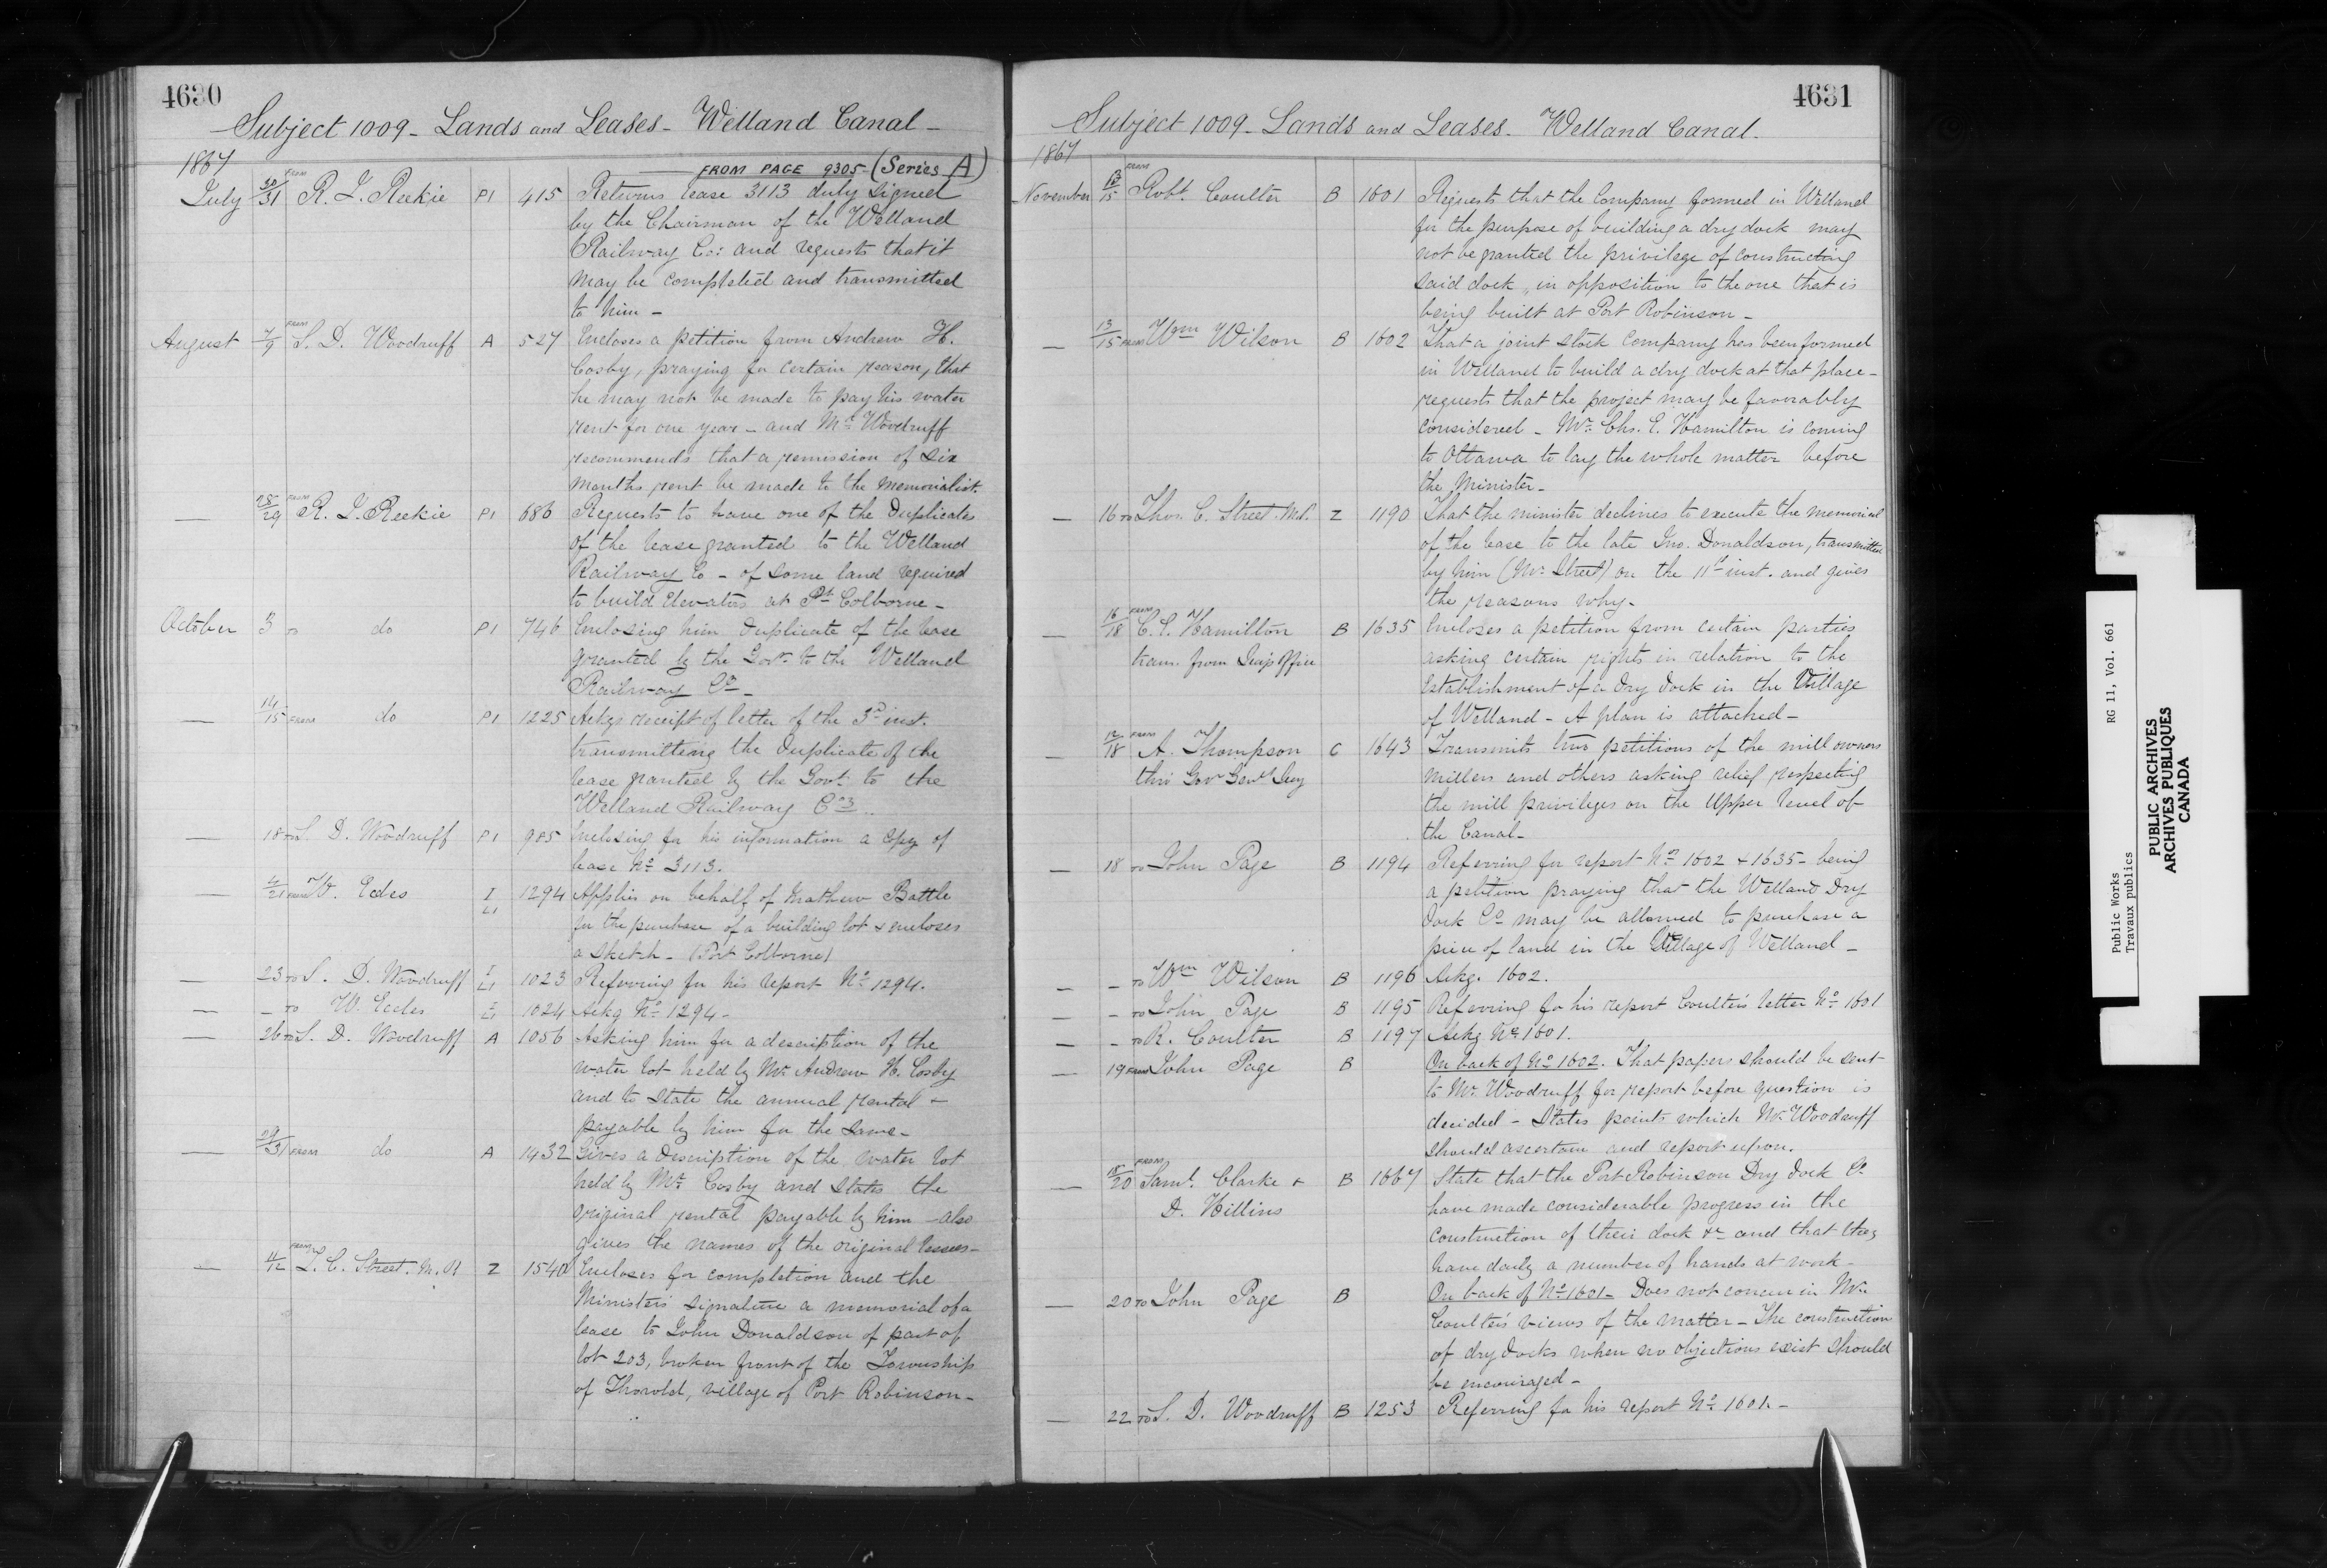 4630
Subject 1009 - Lands and Leases - Welland Canal -
1867
FROM PAGE 9305 - (Series A)
July 30/31 FROM R. J. Reekie P1 415 Returns lease 3113 duly signed
by the Chairman of the Welland
Railway Co: and requests that it
may be completed and transmitted
to him -
August 7/9 FROM S. D. Woodruff A 527 Encloses a petition from Andrew H.
Cosby, praying for certain reason, that
he may not be made to pay his water
rent for one year - and Mr. Woodruff
recommends that a remission of six
months rent be made to the memorialist.
— 28/29 FROM R. J. Reekie P1 686 Requests to have one of the Duplicates
of the lease granted to the Welland
Railway Co - of some land required
to build Elevators at Pt. Colborne -
October 3 TO do P1 746 Enclosing him Duplicate of the lease
granted by the Govt. to the Welland
Railway Co -
— 14/15 FROM do P1 1225 Ackgs receipt of letter of the 3d inst.
transmitting the Duplicate of the
lease granted by the Govt. to the
Welland Railway Co ..
— 18 TO S. D. Woodruff P1 985 Enclosing for his information a copy of
lease No. 3113.
— 4/21 FROM W. Ecles I L1 1294 Applies on behalf of Mathew Battle
for the purchase of a building lot & encloses
a sketch - (Port Colborne)
— 23 TO S. D. Woodruff I L1 1023 Referring for his report No. 1294.
— - TO W. Eccles I L1 1024 Ackg No. 1294 -
— 26 TO S. D. Woodruff A 1056 Asking him for a description of the
water lot held by Mr. Andrew H. Cosby
and to state the annual rental &
payable by him for the same -
— 29/31 FROM do A 1432 Gives a description of the water lot
held by Mr. Cosby and states the
original rental payable by him - also
gives the names of the original lessees -
— 11/12 FROM T. C. Street. M.P. Z 1540 Encloses for completion and the
Minister's signature a memorial of a
lease to John Donaldson of part of
lot 203, broken front of the Township
of Thorold, village of Port Robinson -
4631
Subject 1009 - Lands and Leases - Welland Canal.
1867
November 13/15 FROM Robt. Coulter B 1601 Requests that the Company formed in Welland
for the purpose of building a dry dock may
not be granted the privilege of constructing
said dock, in opposition to the one that is
being built at Port Robinson -
— 13/15 FROM Wm Wilson B 1602 That a joint stock Company has been formed
in Welland to build a dry dock at that place -
requests that the project may be favorably
considered - Mr. Chs. E. Hamilton is coming
to Ottawa to lay the whole matter before
the Minister -
— 16 TO Thos. C. Street M.P. Z 1190 That the minister declines to execute the memorial
of the lease to the late Jno. Donaldson, transmitted
by him (Mr. Street) on the 11th inst. and gives
the reasons why -
— 16/18 FROM C. E. Hamilton B 1635 Encloses a petition from certain parties
trans. from Office asking certain rights in relation to the
Establishment of a Dry Dock in the Village
of Welland - A plan is attached -
— 12/18 FROM A. Thompson C 1643 Transmits two petitions of the mill owners
thro Govr Genl Secy millers and others asking relief respecting
the mill privileges on the Upper level of
the Canal -
— 18 TO John Page B 1194 Referring for report Nos 1602 & 1635 - being
a petition praying that the Welland Dry
Dock Co. may be allowed to purchase a
piece of land in the Village of Welland -
— - TO Wm Wilson B 1196 Ackg. 1602.
— - TO John Page B 1195 Referring for his report Coulter's letter No. 1601
— - TO R. Coulter B 1197 Ackg No. 1601.
— 19 FROM John Page B On back of No. 1602. That papers should be sent
to Mr. Woodruff for report before question is
decided - States points which Mr. Woodruff
should ascertain and report upon.
— 18/20 FROM Saml. Clarke & B 1667 State that the Port Robinson Dry Dock Co.
D. Hillins have made considerable progress in the
construction of their dock &c and that they
have daily a number of hands at work -
— 20 TO John Page B On back of No. 1601 - Does not concur in Mr.
Coulter's views of the matter - The construction
of dry docks when no objections exist should
be encouraged -
— 22 TO S. D. Woodruff B 1253 Referring for his report No. 1601. -
Public Works RG 11, Vol. 661
Travaux publics
PUBLIC ARCHIVES
ARCHIVES PUBLIQUES
CANADA